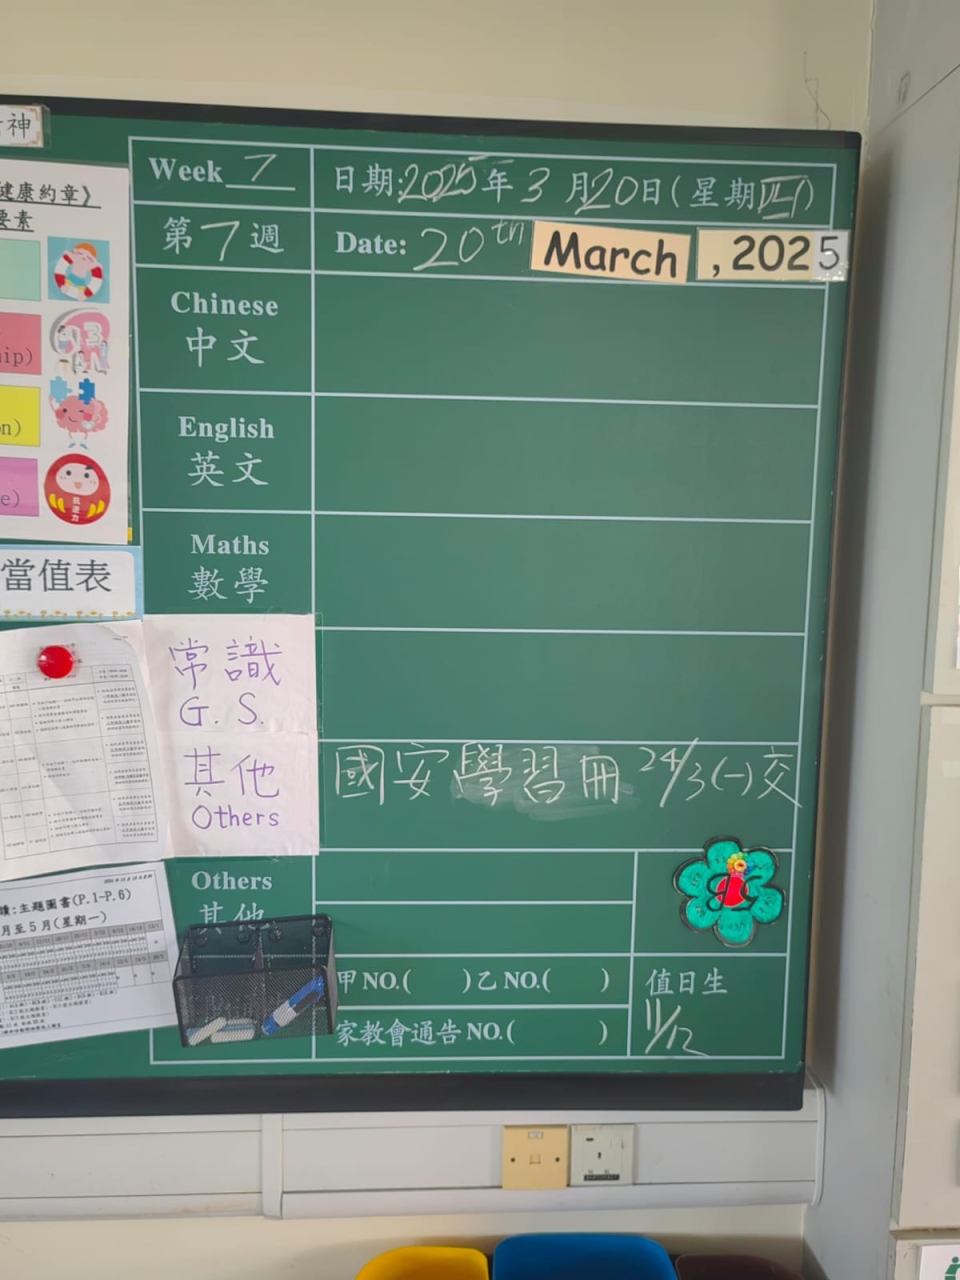 神
健康約章》
要素
hip)
n)
e)
抗逆力
Week 7
日期:2025年3月20日(星期四)
第7週
Date: 20th March , 2025
Chinese
中文
English
英文
Maths
數學
當值表
常識
G. S.
其他
Others
國安學習冊 24/3(一)交
Others
其他
讀:主題圖書(P.1-P.6)
月至5月(星期一)
甲NO.( )乙NO.( )
值日生
11/12
家教會通告NO.( )